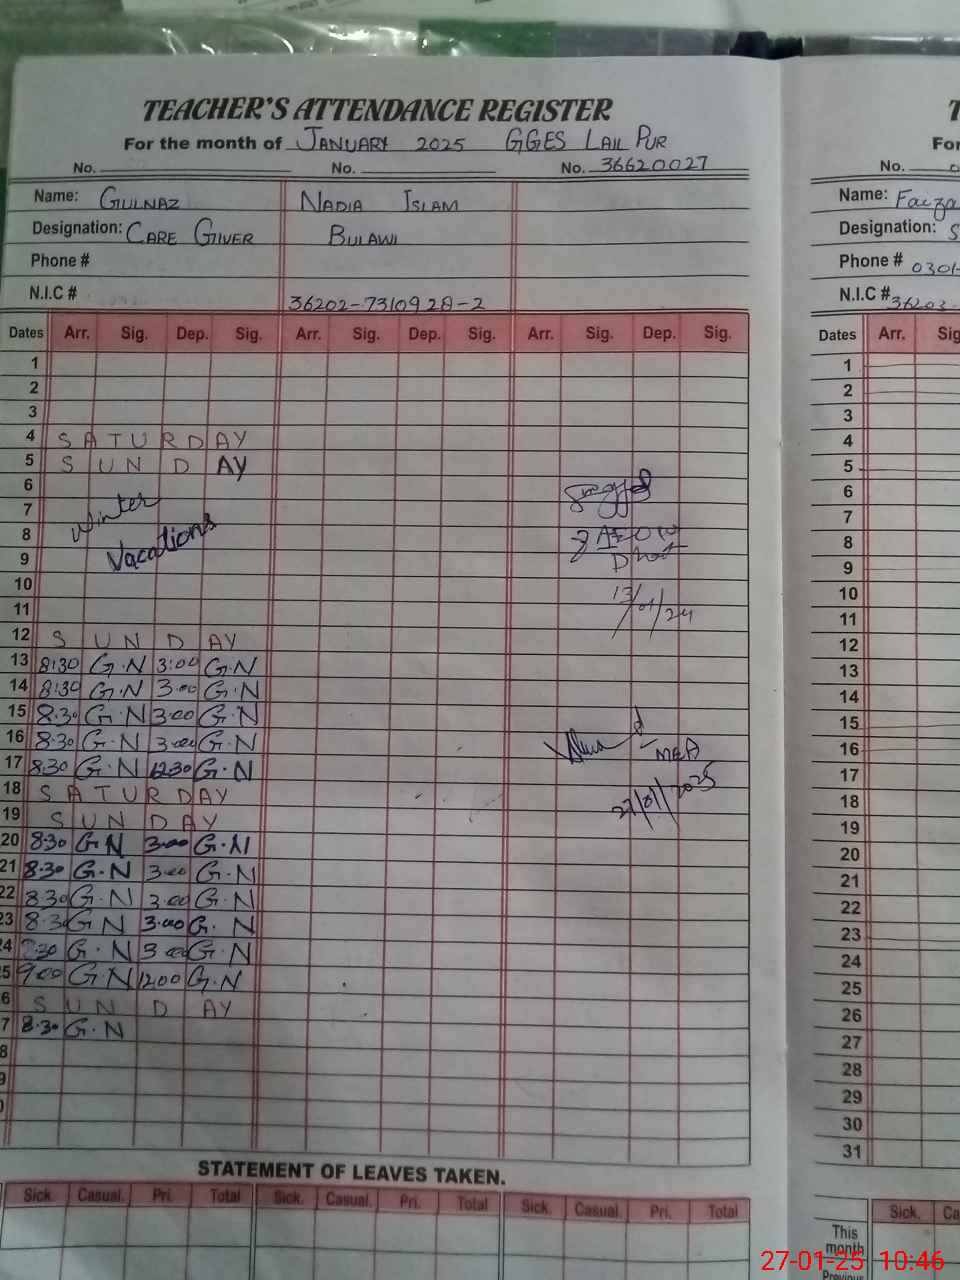 TEACHER'S ATTENDANCE REGISTER
For the month of JANUARY 2025 GGES LAIL PUR
No. No. No. 36620027
Name: GULNAZ NADIA ISLAM
Designation: CARE GIVER BULAWI
Phone #
N.I.C # 36202-7310928-2
Dates Arr. Sig. Dep. Sig. Arr. Sig. Dep. Sig. Arr. Sig. Dep. Sig.
1
2
3
4 SATURDAY
5 SUNDAY
6
7 Winter
8 Vacations
9
10
11 13/01/24
12 SUNDAY
13 8:30 G.N 3:00 G.N
14 8:30 G.N 3.00 G.N
15 8.30 G.N 3.00 G.N
16 8.30 G.N 3.00 G.N
17 8.30 G.N 12.30 G.N MEA
18 SATURDAY 27/01/2025
19 SUNDAY
20 8.30 G.N 3.00 G.N
21 8.30 G.N 3.00 G.N
22 8.30 G.N 3.00 G.N
23 8.30 G.N 3.00 G.N
4 8.30 G.N 3.00 G.N
5 9.00 G.N 12.00 G.N
6 SUNDAY
7 8.30 G.N
8
9
0
STATEMENT OF LEAVES TAKEN.
Sick. Casual. Pri. Total Sick. Casual. Pri. Total Sick. Casual. Pri. Total
T
For
No.
Name: Faiza
Designation: S
Phone # 0301-
N.I.C # 36203-
Dates Arr. Sig
1
2
3
4
5
6
7
8
9
10
11
12
13
14
15
16
17
18
19
20
21
22
23
24
25
26
27
28
29
30
31
Sick. Ca
This
month
Previous
27-01-25 10:46